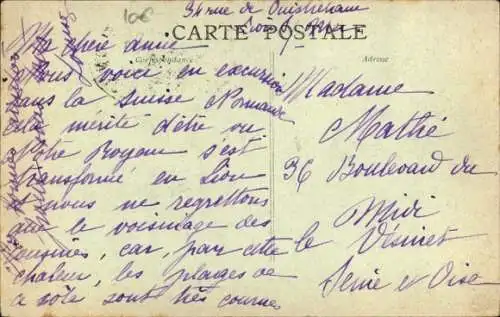 10€
34 rue de Ouistreham
Lion s/ Mer
CARTE POSTALE
Correspondance
Adresse
Ma chère amie
Nous voici en excursion
dans la Suisse Normande
cela mérite d'être vu
Notre Royan s'est
transformé en Lion
nous ne regrettons
que le voisinage des
cousines, car, par cette
chaleur, les plages de
a côté sont très courues
Madame
Mathé
36 Boulevard du
Midi
le Vésinet
Seine et Oise